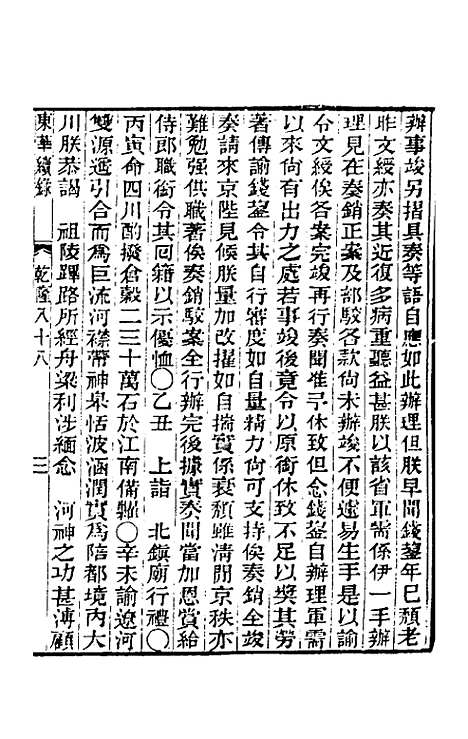 辦事竣另摺具奏等語自應如此辦理但朕早聞錢鋆年已頹老
昨文綬亦奏其近復多病重聽益甚朕以該省軍需係伊一手辦
理見在奏銷正案及部駁各款尙未辦竣不便遽易生手是以諭
令文綬俟各案完竣再行奏聞准予休致但念錢鋆自辦理軍需
以來尙有出力之處若事竣後竟令以原銜休致不足以獎其勞
著傳諭錢鋆令其自行審度如自量精力尙可支持俟奏銷全竣
奏請來京陛見候朕量加改擢如自揣實係衰頹雖淸閒京秩亦
難勉强供職著俟奏銷駁案全行辦完後據實奏聞當加恩賞給
侍郎職銜令其回籍以示優恤○乙丑　上詣　北鎭廟行禮○
丙寅命四川酌撥倉穀二三十萬石於江南備糶○辛未諭遼河
雙源遞引合而爲巨流河襟帶神皋恬波涵潤實爲陪都境內大
川朕恭謁　祖陵蹕路所經舟梁利涉緬念　河神之功甚溥顧
東華續錄　乾隆八十八　二